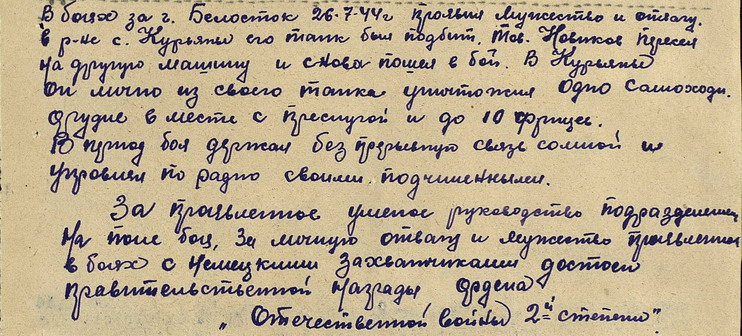 В боях за г. Белосток 26.7.44г проявил мужество и отвагу.
в р-не с. Курьяны его танк был подбит. Тов. Новиков пересел
на другую машину и снова пошел в бой. В Курьяны
он лично из своего танка уничтожил одно самоходн.
орудие в месте с прислугой и до 10 фрицев.
В период боя держал без прерывную связь сомной и
управлял по радио своими подчиненными.
За проявленное умелое руководство подразделением
на поле боя, за личную отвагу и мужество проявленное
в боях с немецкими захватчиками достоен
правительственной награды ордена
„Отечественной войны 2-й степени"